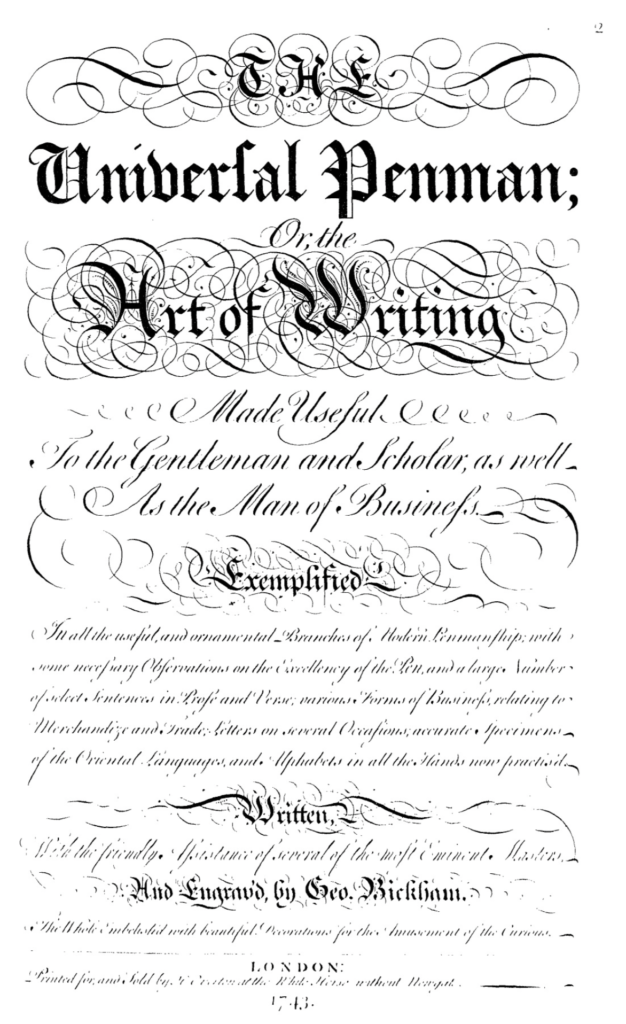 2
THE
Univerſal Penman;
Or, the
Art of Writing
Made Useful
To the Gentleman and Scholar, as well
As the Man of Buſineſs.
Exemplified
In all the useful, and ornamental Branches of Modern Penmanſhip; with
some neceſsary Obſervations on the Excellency of the Pen, and a large Number
of select Sentences in Proſe and Verse; various Forms of Buſineſs, relating to
Merchandize and Trade; Letters on several Occaſions; accurate Specimens
of the Oriental Languages, and Alphabets in all the Hands now practis'd.
Written,
With the friendly Aſsistance of several of the moſt Eminent Masters,
And Engrav'd, by Geo. Bickham.
The Whole Embelish'd with beautiful Decorations for the Amusement of the Curious.
LONDON:
Printed for, and Sold by H. Overton at the White Horse without Newgate.
1743.